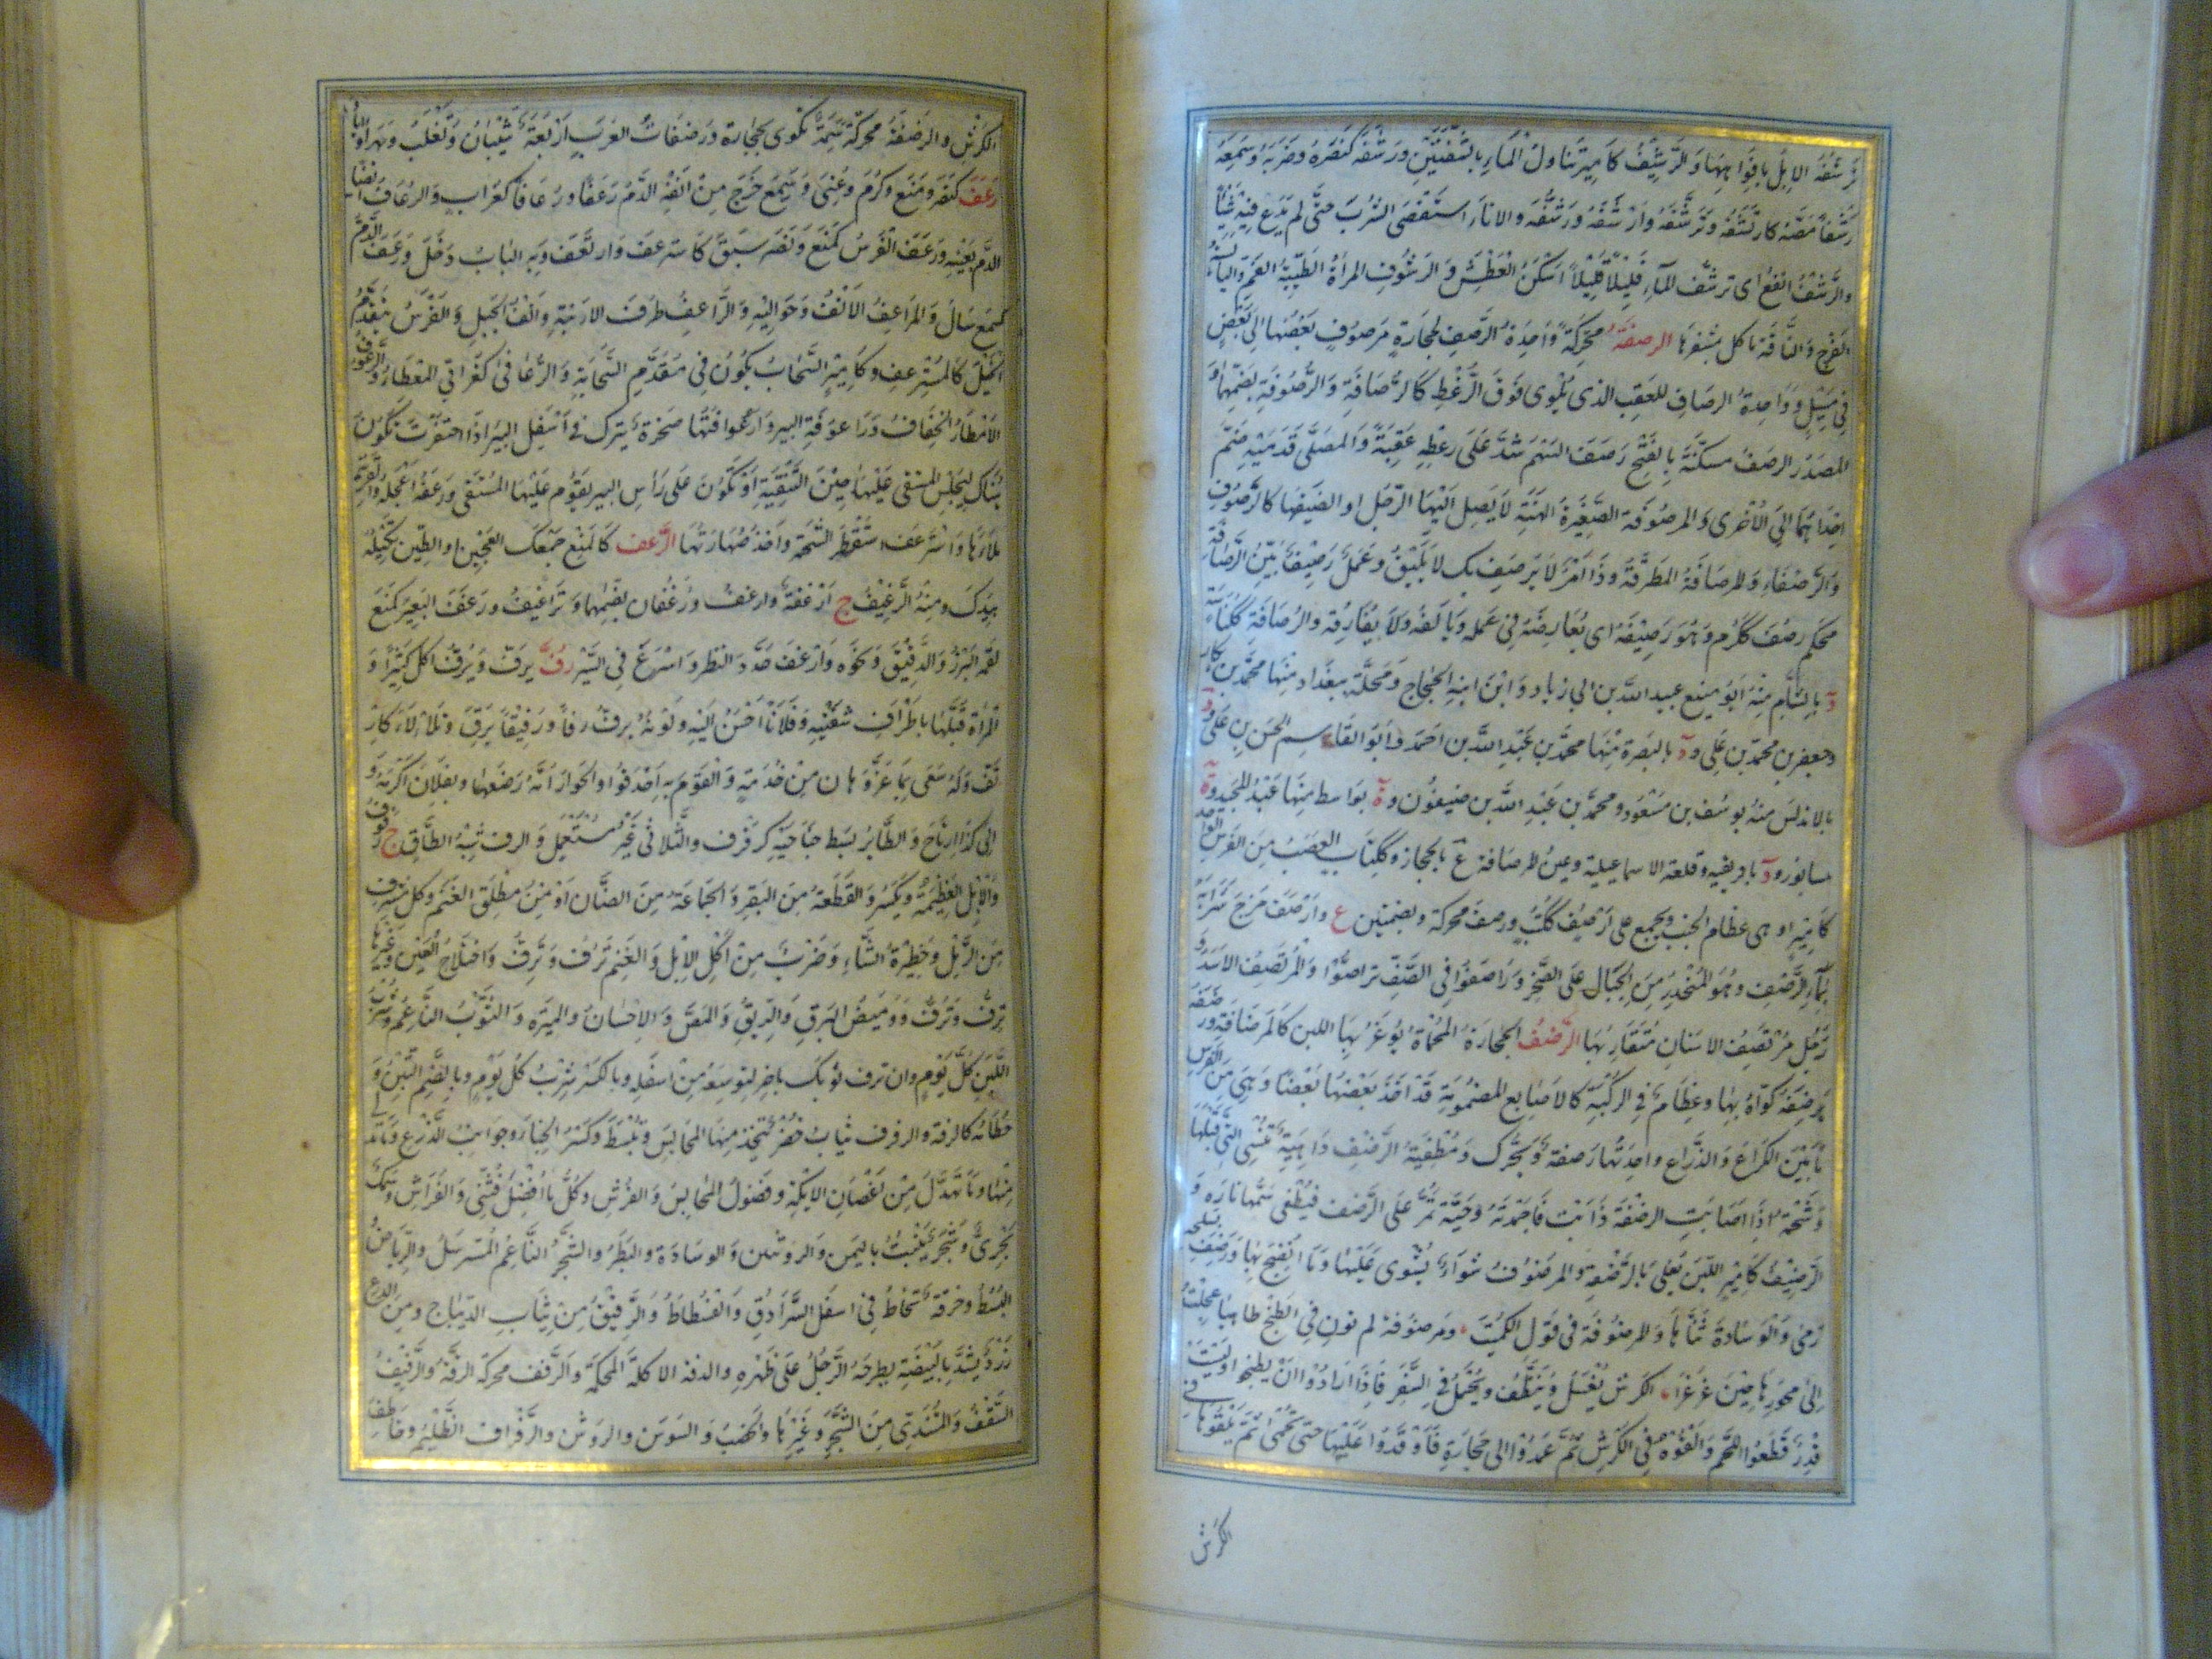 ترشفه الابل بافواهها والرشيف كامير تناول الماء بالشفتين ورشفه كنصره وضربه وسمعه
رشفا مصه كارتشفه وترشفه وارشفه ورشفه والاناء استقصى الشرب حتى لم يدع فيه شيئا
والرشف انقع اى ترشف الماء قليلا قليلا اسكن للعطش والرشوف المراة الطيبة الفم واليابسة
الفرج والناقة تاكل بمشفرها الرصفة محركة واحدة الرصف لحجارة مرصوف بعضها الى بعض
فى مسيل وواحدة الرصاف للعقب الذى يلوى فوق الرعظ كالرصافة والرصوفة بضمهما و
المصدر الرصف مسكنة بالفتح رصف السهم شد على رعظه عقبة والمصلى قدميه ضم
احداهما الى الاخرى والمرصوفة الصغيرة الهنة لا يصل اليها الرجل او الضيقها كالرصوف
والرصفاء والمرصافة المطرقة وذا امر لا يرصف بك لا يليق وعمل رصيف بين الرصافة
محكم رصف ككرم وهو رصيفه اى يعارضه فى عمله ويالفه ولا يفارقه والرصافة ككناسة
د بالشام منه ابو منيع عبيد الله بن ابى زياد وابن ابنه الحجاج ومحلة ببغداد منها محمد بن بكار
وجعفر بن محمد بن على ود بالبصرة منها محمد بن عبد الله بن احمد وابو القاسم الحسن بن على ود
بالاندلس منه يوسف بن مسعود ومحمد بن عبد الله بن ضيفون وة بواسط منها عبد المجيد وة
بنيسابور ود بافريقيه وقلعة الاسماعيلية وعين الرصافة ع بالحجاز وككتاب العصب من الفرس الواحد
كامير او هى عظام الجنب ويجمع على ارصف ككتب ورصف محركة وبضمتين ع وارصف مزج شرابه
بماء الرصف وهو المنحدر من الجبال على الصخر وتراصفوا فى الصف تراصوا والمرتصف الاسد و
رجل مرتصف الاسنان متقاربها الرضف الحجارة المحماة يوغر بها اللبن كالمرضافة ورضفه
يرضفه كواه بها وعظام فى الركبة كالاصابع المضمومة قد اخذ بعضها بعضا وهى من الفرس
ما بين الكراع والذراع واحدتها رضفة ويحرك ومطفية الرضف داهية تنسى التى قبلها
وشحمة اذا اصابت الرضفة ذابت فاخمدته وحية تمر على الرضف فيطفى سمها ناره و
الرضيف كامير اللبن يغلى بالرضفة والمرضوف شواء يشوى عليها وما انضج بها ورضف بسلحه
رمى والوسادة ثناها والمرضوفة فى قول الكميت ومرضوفة لم تون فى الطبخ طاهيا عجلت
الى محورها حين غرغرا الكرش يغسل وينظف ويحمل فى السفر فاذا ارادوا ان يطبخوا وليست
قدر قطعوا اللحم والقوه فى الكرش ثم عمدوا الى حجارة فاوقدوا عليها حتى تحمى ثم يلقونها فى
الكرش
الكرش والرضفة محركة سمة تكوى بحجارة ورضفات العرب اربعة شيبان وتغلب وبهراء واياد
رعف كنصر ومنع وكرم وعنى وسمع خرج من انفه الدم رعفا ورعافا كغراب والرعاف ايضا
الدم بعينه ورعف الفرس كمنع ونصر سبق كاسترعف وارتعف وبه الباب دخل ورعف الدم
كسمع سال والمراعف الانف وحواليه والراعف طرف الارنبة وانف الجبل والفرس يتقدم
الخيل كالمسترعف وكامير السحاب يكون فى مقدم السحابة والرعافى كغرابى المعطاء والرعوف
الامطار الخفاف وراعوفة البير وارعوفتها صخرة يترك فى اسفل البير اذا احتفرت تكون
هناك ليجلس المستقى عليها حين التنقية او تكون على راس البير يقوم عليها المستقى ورعفه اعجله والقربة
ملاءها واسترعف استقطر الشحمة واخذ صهارتها الرغف كالمنع جمعك العجين او الطين تكتله
بيدك ومنه الرغيف ج ارغفة وارغف ورغفان بضمهما وتراغيف ورغف البعير كمنع
لقمه البزر والدقيق ونحوه وارغف حدد النظر واسرع فى السير رف يرف ويرف اكل كثيرا و
المراة قبلها باطراف شفتيه وفلانا احسن اليه ولونه يرف رفا ورفيفا برق وتلالا كارتف
وله سعى بما عز وهان من خدمة والقوم به احدقوا والحوار امه رضعها وبفلان اكرمه و
الى كذا ارتاح والطاير بسط جناحيه كرفرف والثلاثى غير مستعمل والرف شبه الطاق ج رفوف
والابل العظيمة ويكسر والقطعة من البقر والجماعة من الضان او من مطلق الغنم وكل مشرف
من الرمل وحظيرة الشاء وضرب من اكل الابل والغنم ترف وترف واختلاج العين وغيرها
ترف وترف ووميض البرق والريق والمص والاحسان والميرة والثوب الناعم وشرب
اللبن كل يوم وان ترف ثوبك باخر لتوسعه من اسفله وبالكسر شرب كل يوم وبالضم التبن و
حطامه كالرفة والرفرف ثياب خضر تتخذ منها المحابس وتبسط وكسر الخباء وجوانب الدرع وما تدلى
منها وما تهدل من اغصان الايكة وفضول المحابس والفرش وكل ما افضل فثنى والفراش وسمك
بحرى وشجر ينبت باليمن والروشن والوسادة والبظر والشجر الناعم المسترسل والرياض
البسط وخرقة تخاط فى اسفل السرادق والفسطاط والرقيق من ثياب الديباج ومن الدرع
زرد يشد بالبيضة يطرحه الرجل على ظهره والرفة الاكلة المحكمة والرفف محركة الرقة والرفيف
السقف والمتندى من الشجر وغيرها والخصب والسوسن والروشن والرفراف الظليم وخاطف